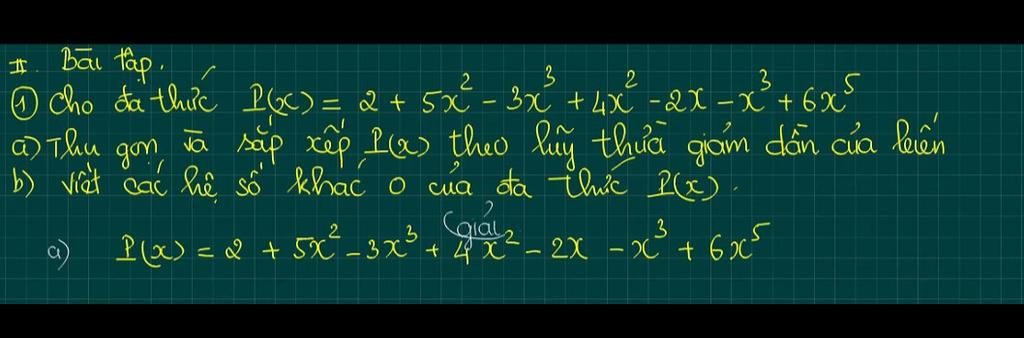 II. Bài tập.
① Cho đa thức P(x) = 2 + 5x² - 3x³ + 4x² - 2x - x³ + 6x⁵
a) Thu gọn và sắp xếp P(x) theo lũy thừa giảm dần của biến
b) Viết các hệ số khác 0 của đa thức P(x).
Giải
a) P(x) = 2 + 5x² - 3x³ + 4x² - 2x - x³ + 6x⁵